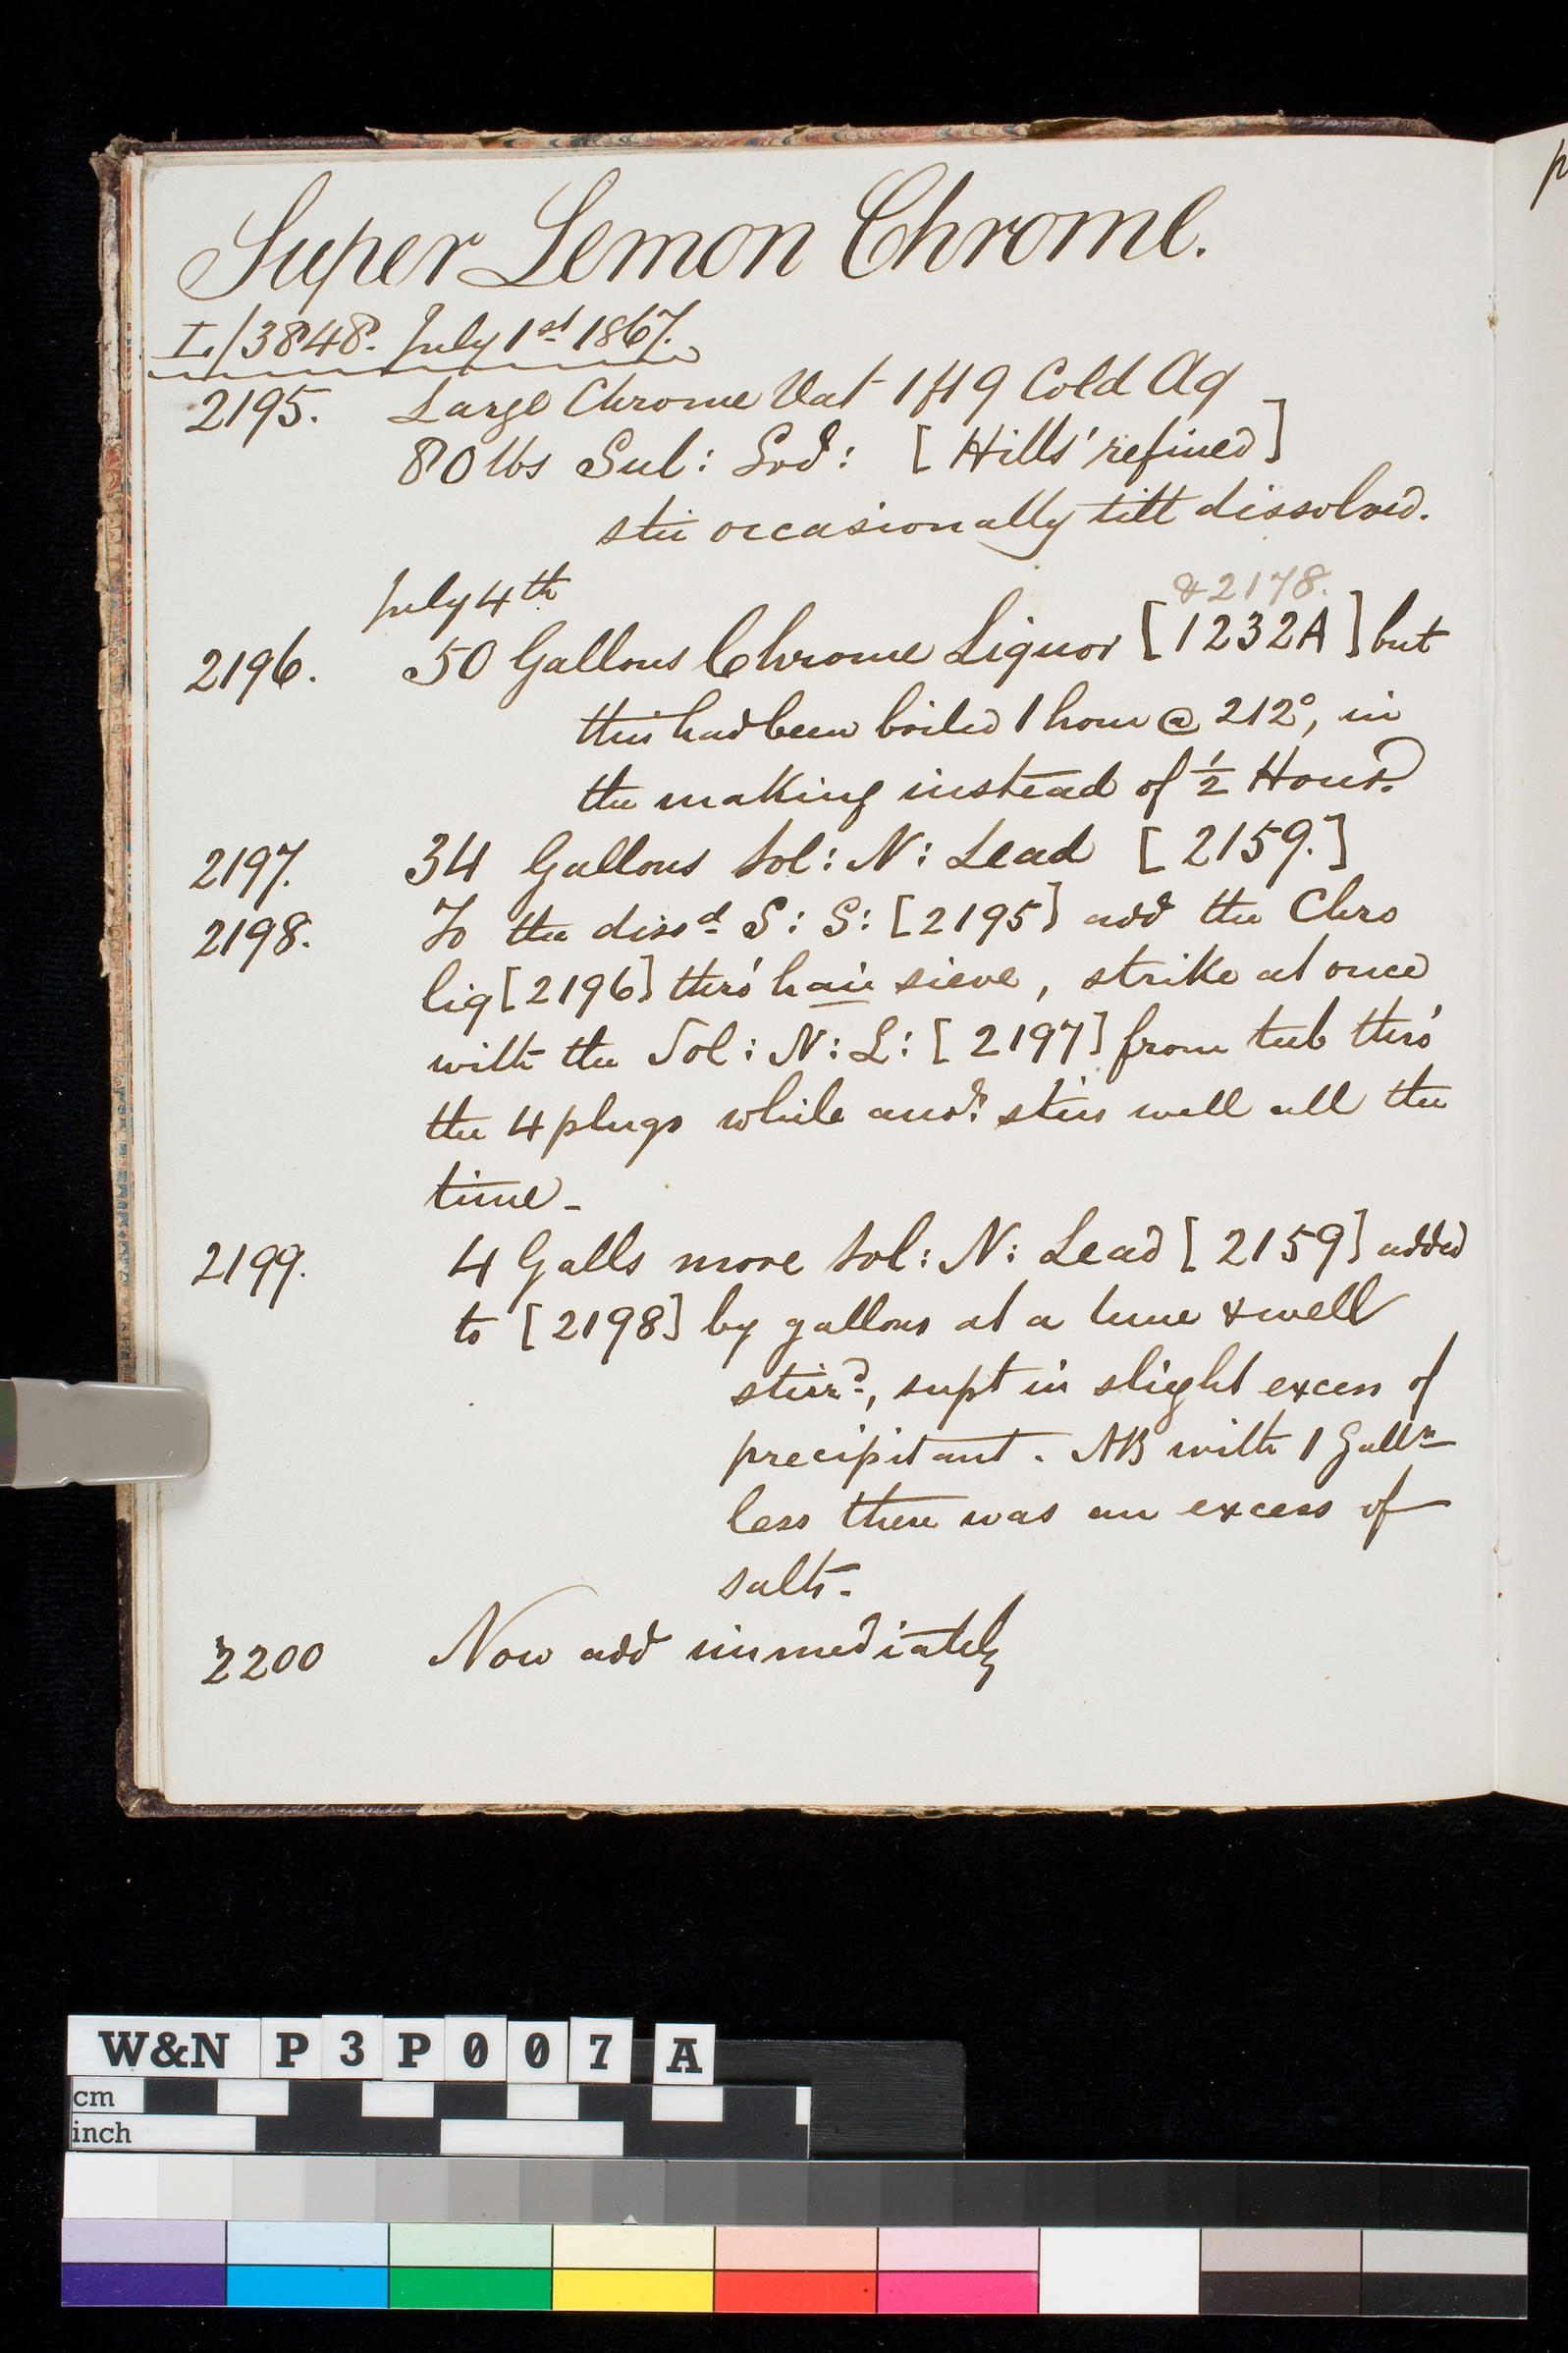 Super Lemon Chrome.
L/3848. July 1st 1867.
2195. Large Chrome Vat 1ft 9 Cold Aq
80 lbs Sul: Sod: [Hills' refined]
stir occasionally till dissolved.
July 4th
& 2178.
2196. 50 Gallons Chrome Liquor [1232A] but
this had been boiled 1 hour @ 212°, in
the making instead of ½ Hour.
2197. 34 Gallons Sol: N: Lead [2159.]
2198. To the dissd S: S: [2195] add the Chro
liq [2196] thro' hair sieve, strike at once
with the Sol: N: L: [2197] from tub thro'
the 4 plugs while anor. stirs well all the
time -
2199. 4 Galls more Sol: N: Lead [2159] added
to [2198] by gallons at a time & well
stirrd, supt in slight excess of
precipitant. NB with 1 Galln
less there was an excess of
salts.
2200 Now add immediately
p
W&N P3P007 A
cm
inch